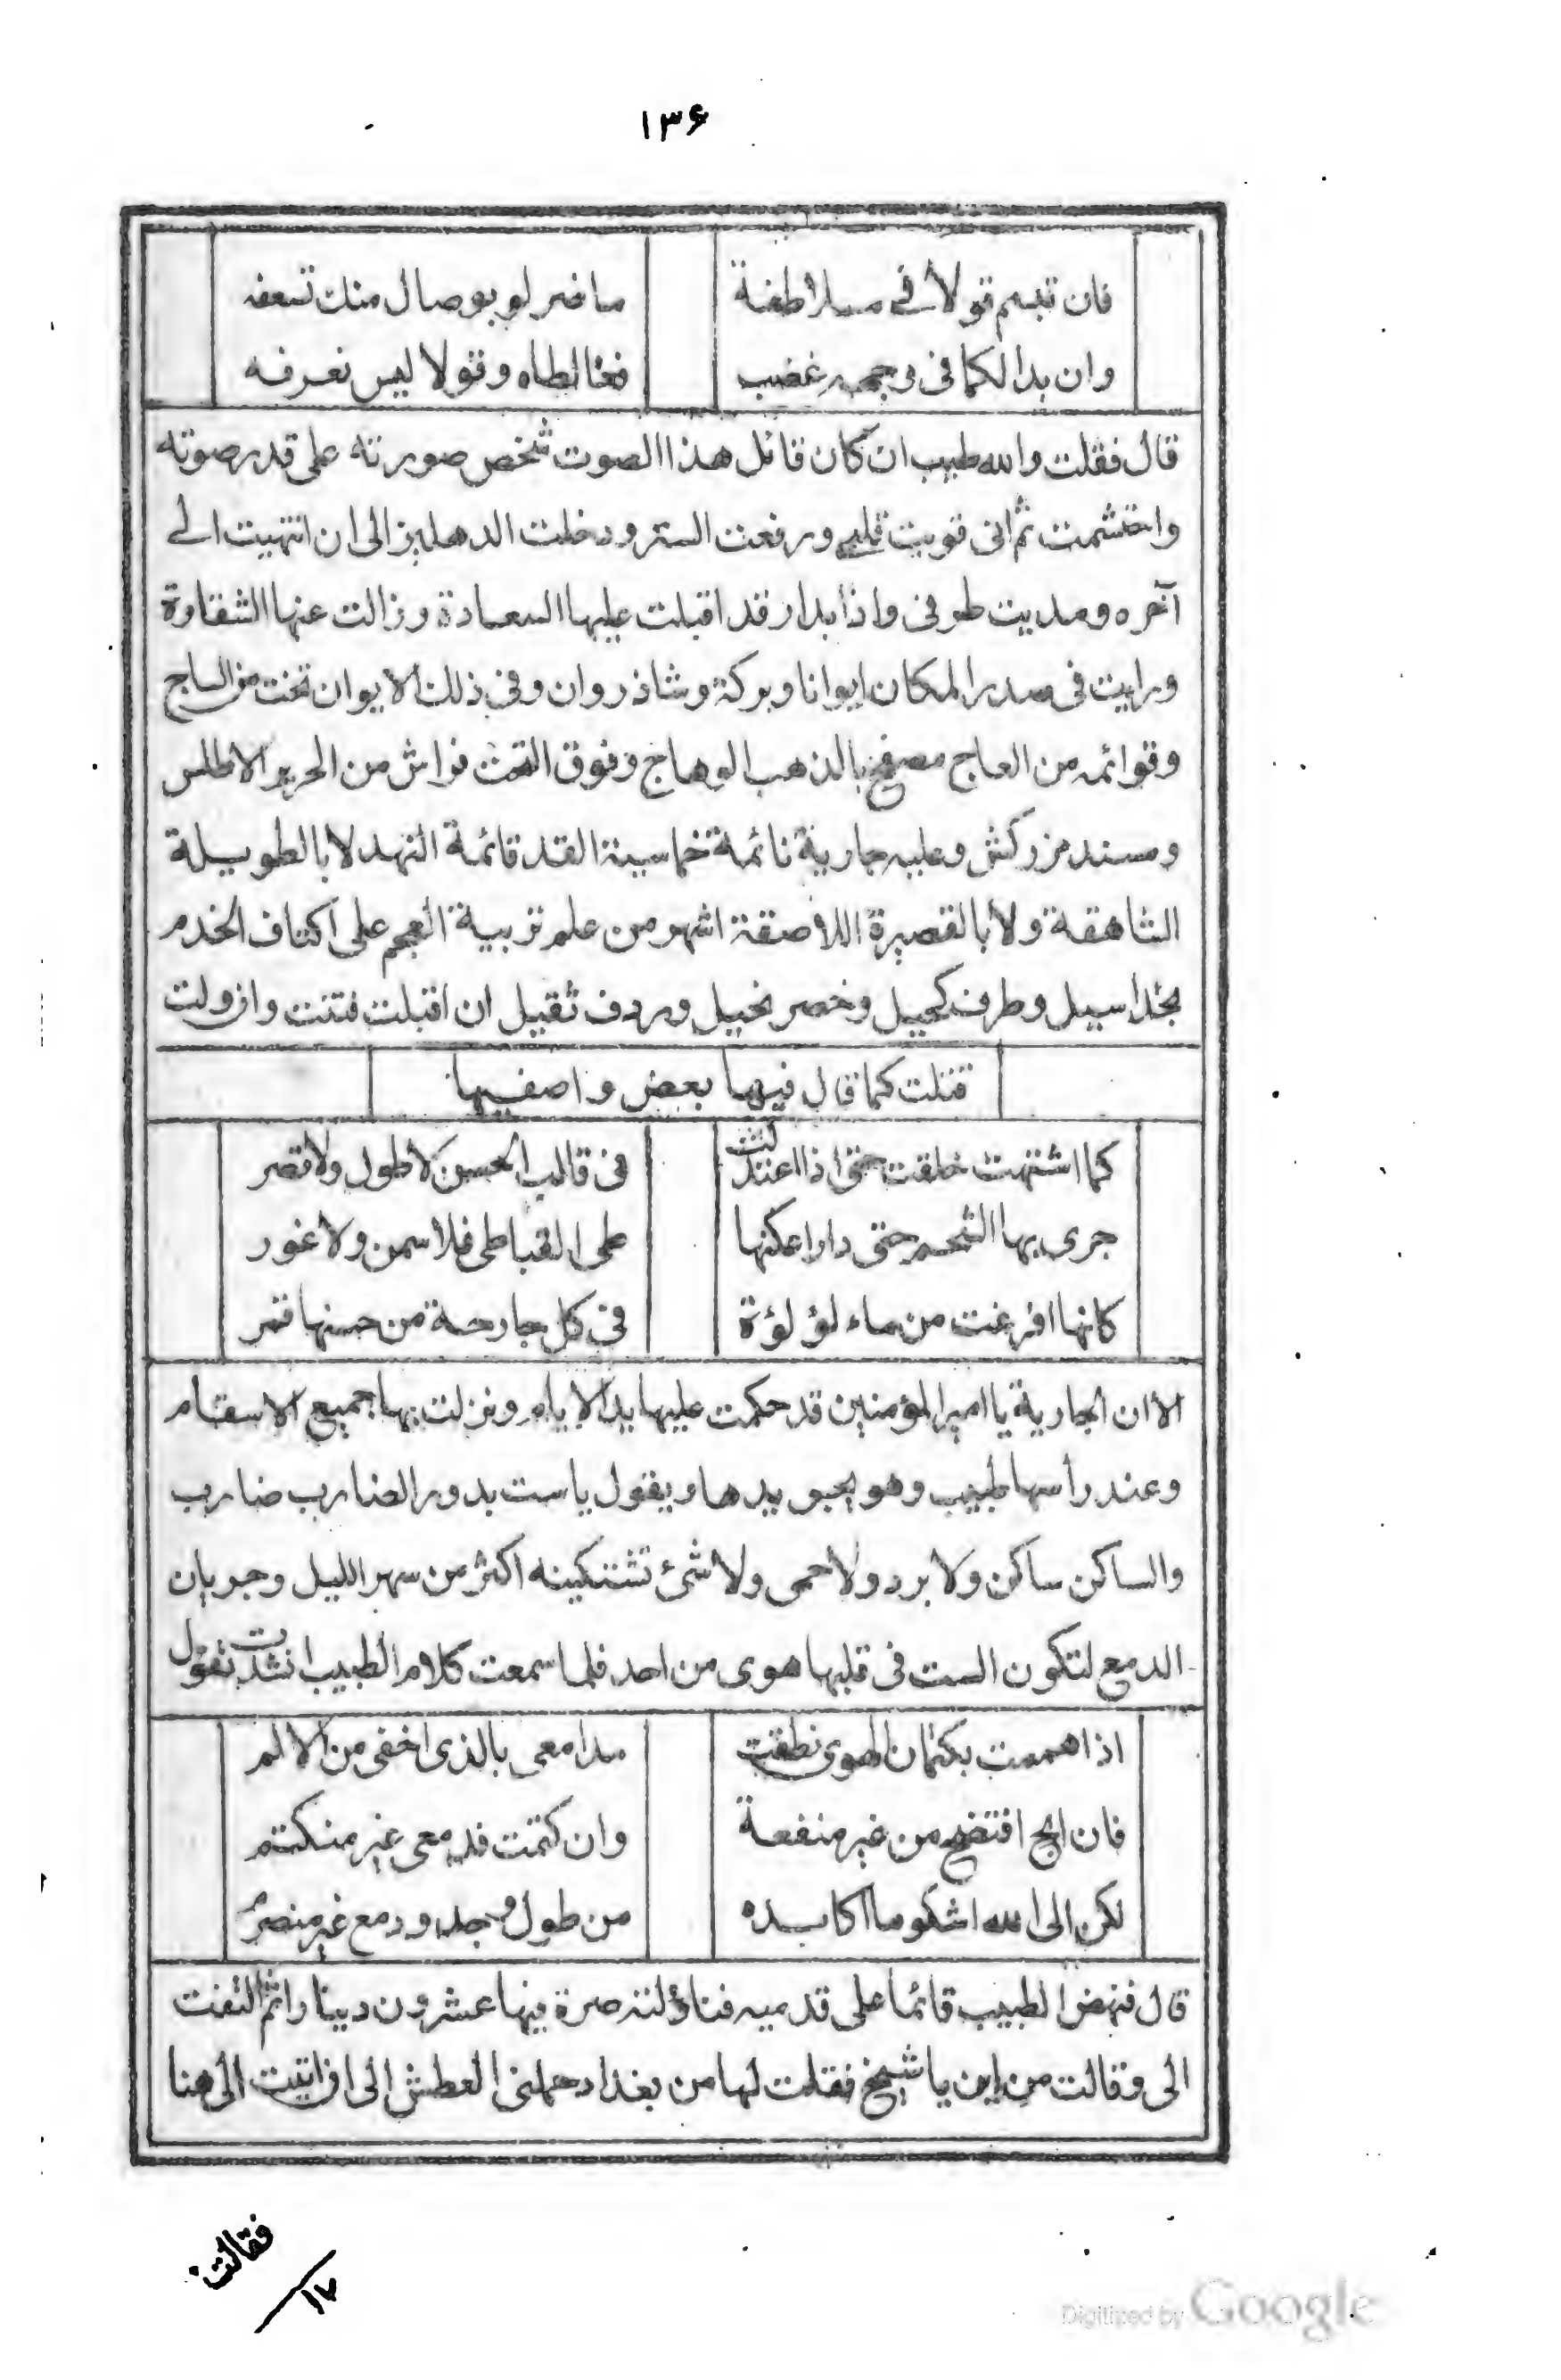 ١٣۶
فان تبسم قولا في ملاطفة ما ضر لو بوصال منك تسعفه
وان بدا لكما في وجهه غضب فغالطاه وقولا ليس نعرفه
قال فقلت والله طيب ان كان قائل هذا الصوت شخص صورته على قدر صوته
واحتشمت ثم انى قويت قلبي ورفعت الستر ودخلت الدهليز الى ان انتهيت الى
آخره ومديت طرفى واذا بدار قد اقبلت عليها السعادة وزالت عنها الشقاوة
ورايت فى صدر المكان ايوانا وبركة وشاذروان وفى ذلك الايوان تخت من الساج
وقوائمه من العاج مصفح بالذهب الوهاج وفوق التخت فراش من الحرير الاطلس
ومسند مزركش وعليه جارية نائمة خماسية القد قائمة النهد لا بالطويلة
الشاهقة ولا بالقصيرة اللاصقة اشهر من علم تربية العجم على اكتاف الخدم
بخد اسيل وطرف كحيل وخصر نحيل وردف ثقيل ان اقبلت فتنت وان ولت
قتلت كما قال فيها بعض واصفيها
كما اشتهت خلقت حتى اذا اعتدلت فى قالب الحسن لا طول ولا قصر
جرى بها الشحم حتى دار اعكنها طى القباطى فلا سمن ولا غور
كانها افرغت من ماء لؤلؤة فى كل جارحة من حسنها قمر
الا ان الجارية يا امير المؤمنين قد حكمت عليها يد الايام ونزلت بها جميع الاسقام
وعند رأسها طبيب وهو يجبو يدها ويقول يا ست بدور الضارب ضارب
والساكن ساكن ولا برد ولا حمى ولا شئ تشتكينه اكثر من سهر الليل وجريان
الدمع لتكون الست فى قلبها هوى من احد فلما سمعت كلام الطبيب انشدت تقول
اذا هممت بكتمان الهوى نطقت مدامعى بالذى اخفى من الالم
فان ابح افتضح من غير منفعة وان كتمت فدمعى غير منكتم
لكن الى الله اشكو ما اكابده من طول وجد ودمع غير منصرم
قال فنهض الطبيب قائما على قدميه فناولته صرة فيها عشرون دينارا ثم التفتت
الى وقالت من اين يا شيخ فقلت لها من بغداد حملنى العطش الى ان اتيت الى هنا
فقالت
١٧
Digitized by Google